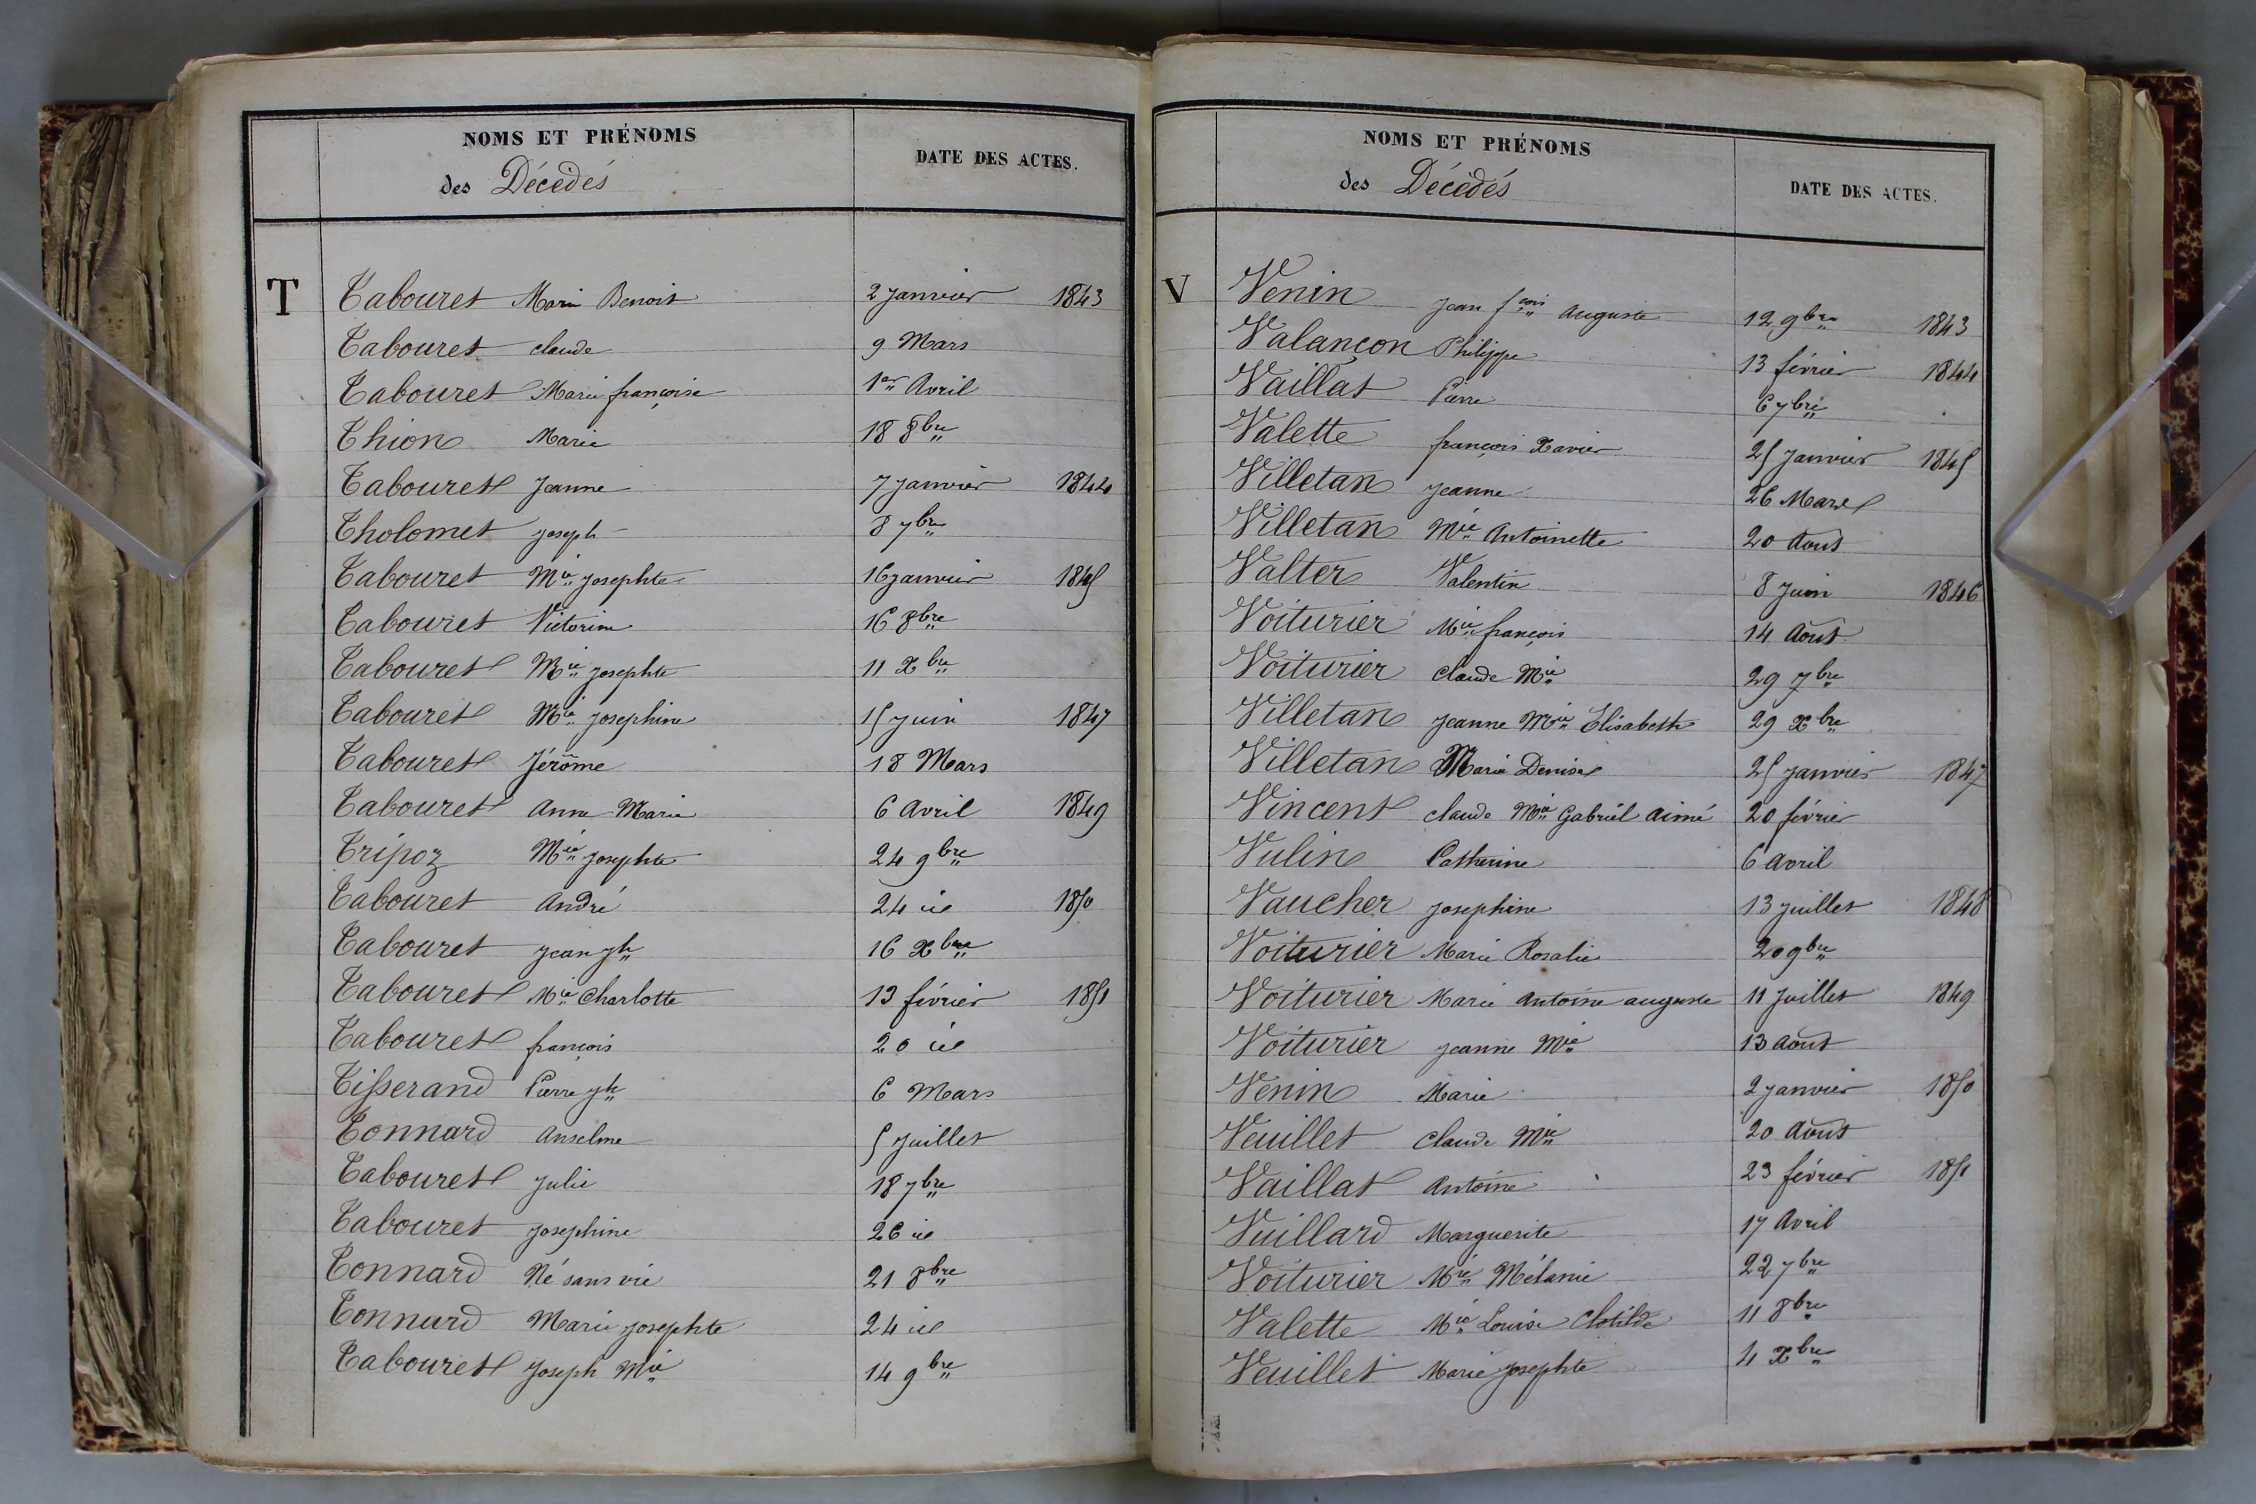 NOMS ET PRÉNOMS
des Décédés
DATE DES ACTES.
T
Tabouret Marie Benoit 2 janvier 1843
Tabouret claude 9 Mars
Tabouret Marie françoise 1er Avril
Thion Marie 18 8bre
Tabouret Jeanne 7 janvier 1844
Tholomet joseph 8 7bre
Tabouret Mie josephte 16 janvier 1845
Tabouret Victorine 16 8bre
Tabouret Mie josephte 11 Xbre
Tabouret Mie josephine 15 juin 1847
Tabouret Jérôme 18 Mars
Tabouret Anne Marie 6 Avril 1849
Tripoz Mie josephte 24 9bre
Tabouret André 24 id 1850
Tabouret jean jh 16 Xbre
Tabouret Mie Charlotte 13 février 1851
Tabouret françois 20 id
Tisserand Pierre jh 6 Mars
Tonnard Anselme 5 juillet
Tabouret Julie 18 7bre
Tabouret josephine 26 id
Tonnard Né sans vie 21 8bre
Tonnard Marie josephte 24 id
Tabouret Joseph Mie 14 9bre
NOMS ET PRÉNOMS
des Décédés
DATE DES ACTES.
V
Venin Jean fçois Auguste 12 9bre 1843
Valançon Philippe 13 février 1844
Vaillat Pierre 6 7bre
Valette françois Xavier 25 Janvier 1845
Villetan Jeanne 26 Mars
Villetan Mie Antoinette 20 Aout
Valter Valentin 8 Juin 1846
Voiturier Mie françois 14 Août
Voiturier claude Mie 29 7bre
Villetan Jeanne Mie Elisabeth 29 Xbre
Villetan Marie Denise 25 janvier 1847
Vincent claude Mie Gabriél Aimé 20 février
Vulin Catherine 6 Avril
Vaucher Josephine 13 juillet 1848
Voiturier Marie Rosalie 20 9bre
Voiturier Marie Antoine auguste 11 Juillet 1849
Voiturier Jeanne Mie 13 août
Venin Marie 2 janvier 1850
Veuillet Claude Mie 20 Août
Vaillat Antoine 23 février 1851
Vuillard Marguerite 17 Avril
Voiturier Mie Mélanie 22 7bre
Valette Mie Louise Clotilde 11 8bre
Veuillet Marie Josephte 4 Xbre